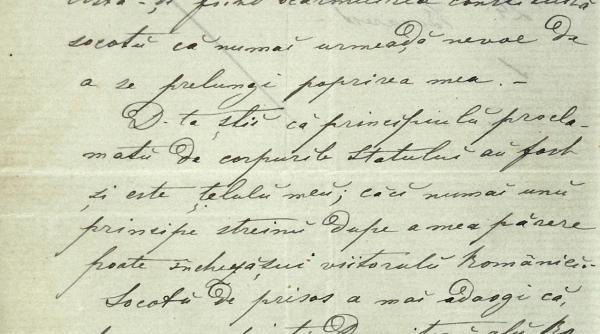 socotŭ că numaĭ urmeaḑă nevoe de
a se prelungi poprirea mea. —
D-ta știĭ că principiulŭ procla-
matŭ de corpurile Statuluĭ aŭ fost
și este țelulŭ meŭ; căcĭ numaĭ unŭ
principe streinŭ dupe a mea părere
poate închezășui viitorulŭ Românieĭ.-
Socotŭ de prisos a maĭ adaogi că,